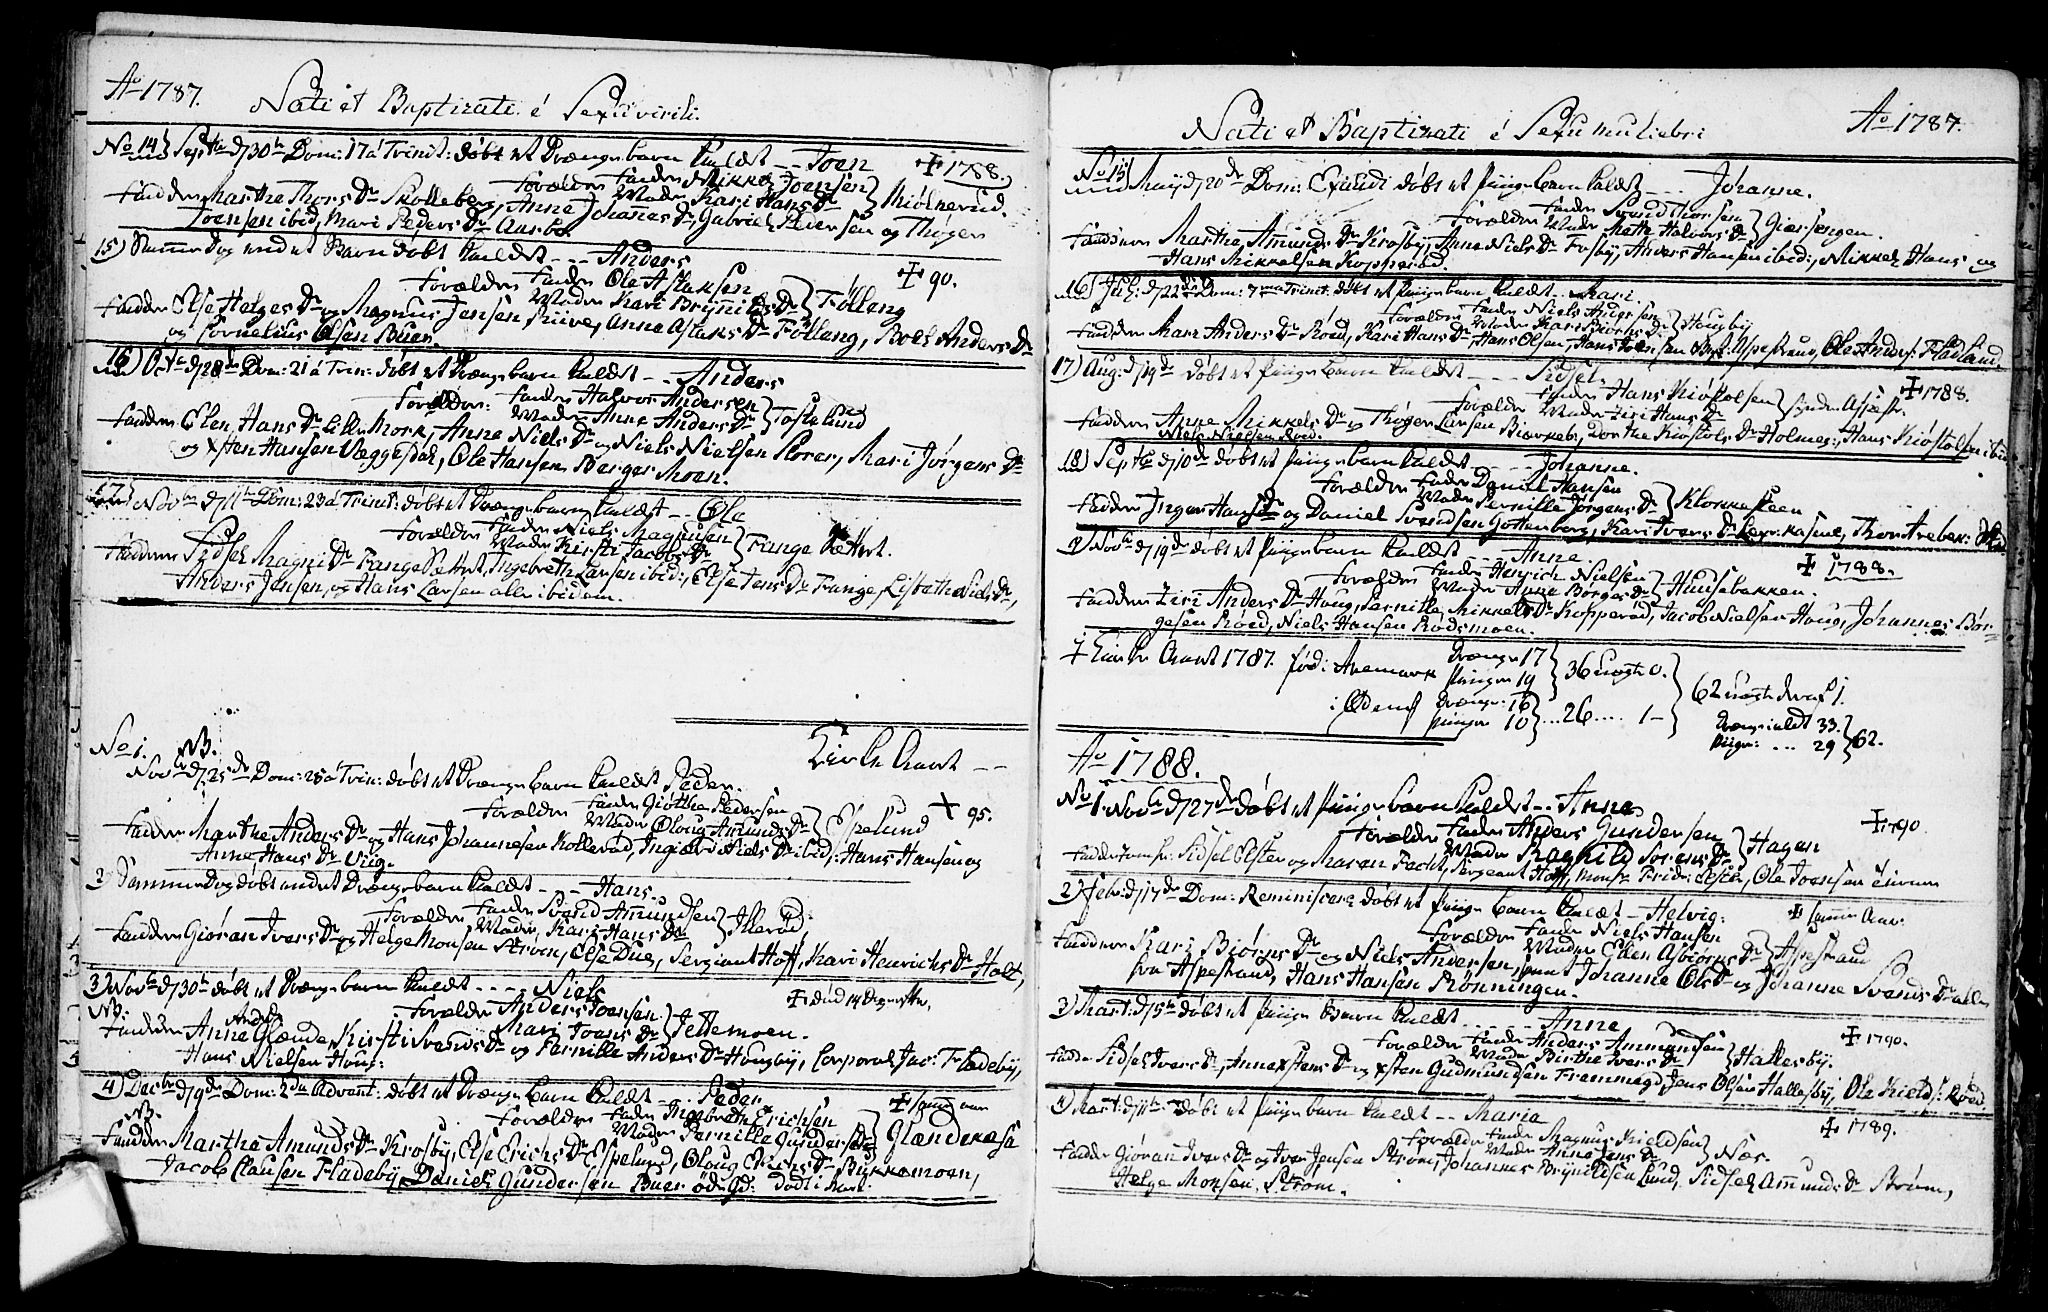 Ao 1787.
Nati et Baptizati é Sexu virili.
No 14) Septbr d 30te Dom: 17 a Trinit: döbt et Drænge barn kaldet -- Joen
✝ 1788.
Forældre Fader Mikkel Joensen
Moder Kari Hans Dr } Kiölnerud.
Faddere Marthe Thors Dr Skolleborg, Anne Johanes Dr, Gabriel Peiersen og Thøger
Joensen ibid, Mari Peders Dr Aarbo.
15) Samme Dag end et Barn döbt kaldet --- Anders
✝ 90.
Forældre Fader Ole Aslaksen
Moder Kari Brynilds Dr } Tölleng
Faddere Else Helges Dr og Magnus Jensen Riive, Anne Aslaks Dr Fölleng, Boel Anders Dr
og Cornelius Olsen Buer.
16) Octbr d 28de Dom: 21 a Trin: döbt et Drænge barn kaldet -- Anders
Forældre: Fader Halvor Andersen
Moder Anne Anders Dr } Tostelund
Faddere Elen Hans Dr Lille Mork, Anne Niels Dr og Niels Nielsen Korer, Mari Jörgens Dr
og Xsten Hansen Væggesdal, Ole Hansen Berger Moen.
17) Novbr d 11te Dom: 23 a Trinit: döbt et Drænge barn kaldet -- Ole
Forældre Fader Niels Magnisen
Moder Kirsti Jacobs Dr } Fange Sættet.
Faddere Sidsel Magni Dr Fange Sættet, Ingebreth Larsen ibid:, Else Jens Dr Fange, Lisbeth Niels Dr,
Anders Jensen, og Hans Larsen alle ibidem.
Kirke Aaret --
No 1.
NB.
Novbr d 25de Dom: 25 a Trin: döbt et Drænge barn kaldet Peder.
Forældre Fader Giöthe Pedersen
Moder Oloug Amunds Dr } Espelund
✝ 95.
Faddere Marthe Anders Dr og Hans Johannesen Kollerud, Ingiærd Niels Dr ibid: Hans Hansen og
Anne Hans Dr Viig.
2) Samme Dag döbt end et Drænge barn kaldet --- Hans.
Forældre Fader Svend Amundsen
Moder Kari Hans Dr } Illerød,
Faddere Giöran Ivers Dr og Helge Monsen Ström, Else Due, Sergiant Hoff, Kari Henrichs Dr Holt,
3) Novbr d 30te döbt et Drænge barn kaldet ---- Niels
NB.
✝ död 14 Dage efter,
Forældre Anders Joensen
Mari Joens Dr } Jettemoen.
Faddere Anne Glænde, Kirsti Svends Dr og Pernille Anders Dr Hougby, Corporal Jac: Fladeby,
Hans Nielsen Houg:
4) Decbr d 9de Dom: 2da Advent: döbt et Drænge barn kaldet -- Peder
NB.
✝ samme aar
Forældre Fader Ingebreth Erichsen
Moder Pernille Gunders Dr } Glændenæsa
Faddere Martha Amunds Dr Krosby, Else Erichs Dr Espelund, Oloug Erichs Dr Bykkemoen,
Jacob Clausen Fladeby, Daniel Gundersen Buer
Nati et Baptizati é Sexu muliebri
Ao 1787.
No 15) Maij d 20de Dom: Exaudi döbt et Pigebarn kaldet --- Johanne.
Forældre Fader Svend Thorsen
Moder Mette Halvors Dr } Giersengen.
Faddere Marthe Amunds Dr Krosby, Anne Niels Dr Fosby, Anders Hansen ibid:, Mikkel Hans og
Hans Mikkelsen Kopperöd.
16) Julj: d 22de Dom: 7ma Trinit: döbt et Pigebarn kaldet -- Mari.
Forældre Fader Niels Andersen
Moder Kari Biörns Dr } Hougby
Faddere Mari Anders Dr Röed, Kari Hans Dr, Hans Olsen, Hans Joensen Aspestrand, Ole Anders: Fladland.
17) Aug: d 19de döbt et Pige barn kaldet ---- Sidsel.
✝ 1788.
Forældre Fader Hans Kiöstolsen
Moder Ziri Hans Dr } Synder Aspestr:
Faddere Anne Mikkels Dr og Thöger Larsen Biørneby, Dorthe Kiöstols Dr Holmes:, Hans Kiöstolsen ibid
Niels Nielsen Röed.
18) Septbr d 10de döbt et Pige barn kaldet ---- Johanne.
Forældre Fader Daniel Hansen
Moder Pernille Jörgens Dr } Klonnesteen
Faddere Inger Hans Dr og Daniel Svendsen Gottenborg, Kari Ivers Dr
19) Novbr d 19de döbt et Pige barn kaldet --- Anne.
✝ 1788.
Forældre Fader Henrich Nielsen
Moder Anne Börges Dr } Huusebakken.
Faddere Ziri Anders Dr Houg, Pernille Mikkels Dr Kopperöd, Jacob Nielsen Houg, Johannes Bör-
gesen Röed, Niels Hansen Rödsmoen.
I Kirke Aaret 1787. föd: Aremark Drænge 17
Piger 19 } 36 uægte 0.
i Ødemk Drænge: 16
Piger 10 } ... 26 .... 1 -
} 62 uægte deraf 1.
Drænge i alt 33.
Piger: ... 29 } 62.
Ao 1788.
No 1. Novbr d 27de döbt et Pige barn kaldet -- Anne
✝ 1790.
Forældre Fader Anders Gundersen
Moder Ragnild Sörens Dr } Hagen
Faddere Jomfr: Sidsel Elster og Maren Fecht, Sergeant Hoff, Monsr Fridr: Elster, Ole Joensen
2) Febr: d 17de Dom: Reminiscere döbt et Pige barn kaldet -- Helvig:
✝ samme Aar.
Forældre Fader Niels Hansen
Moder Elen Asbiörns Dr } Aspestrand
Faddere Kari Biörns Dr og Niels Andersen, samt Johanne Ols Dr og Johanne Svends Dr alle
fra Aspestrand, Hans Hansen Rönningen.
3) Mart: d 5te döbt et Pige barn kaldet ----- Anne
✝ 1790.
Forældre Fader Anders Ammundsen
Moder Birthe Ivers Dr } Hallesby.
Fadder Sidsel Ivers Dr, Anne Xstens Dr og Xsten Gudmundsen Fremmegd, Jens Olsen Hallesby, Ole Kield: Röed
4) Mart: d 11te döbt et Pige barn kaldet -- Maria
✝ 1789.
Forældre Fader Magnus Kieldsen
Moder Anne Jens Dr } Næs.
Fadder Giöran Ivers Dr og Iver Jensen Ström, Johannes Brynildsen Lund, Sidsel Amunds Dr Ström,
Helge Monsen Ström.